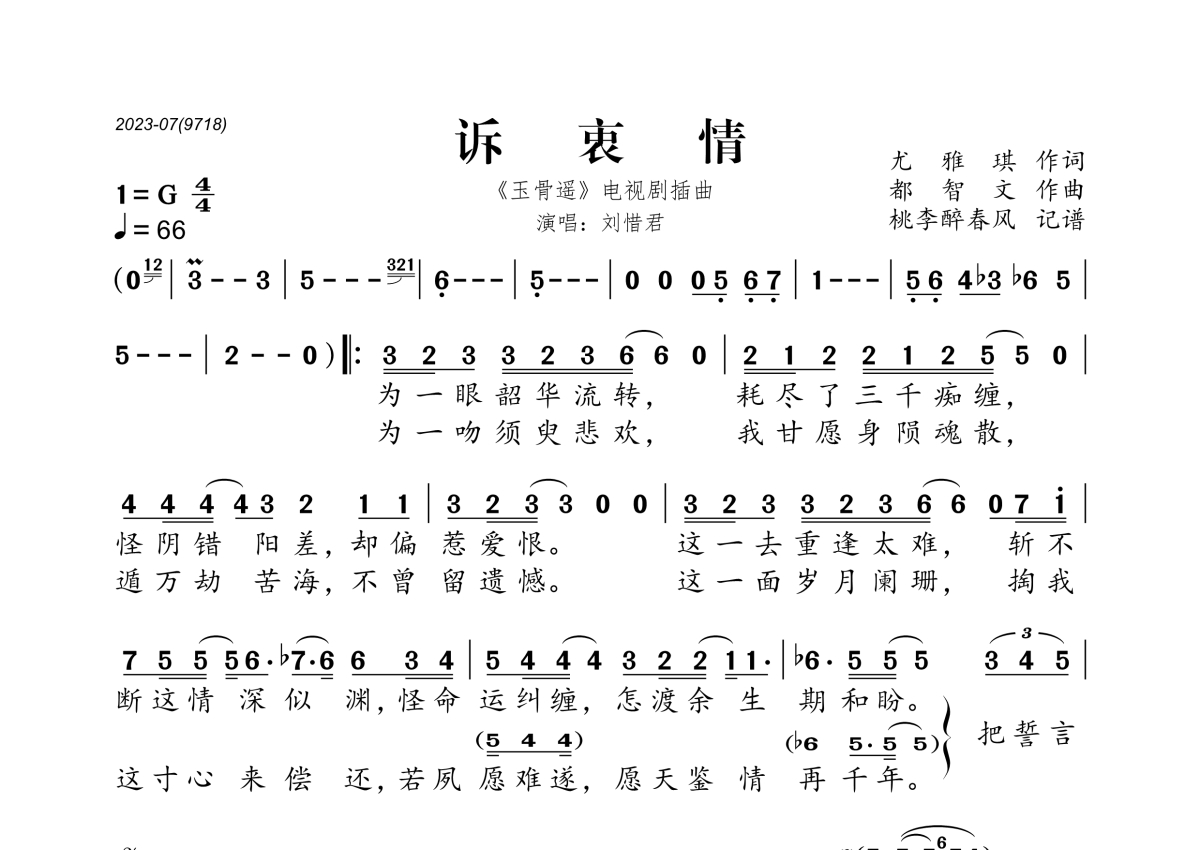 2023-07(9718)
诉 衷 情
尤 雅 琪 作词
1=G 4/4
《玉骨遥》电视剧插曲
都 智 文 作曲
♩=66
演唱：刘惜君
桃李醉春风 记谱
(0 12 | 3 - - 3 | 5 - - - 321 | 6 - - - | 5 - - - | 0 0 0 5 6 7 | 1 - - - | 5 6 4 ♭3 ♭6 5 |
5 - - - | 2 - - 0 ) ‖: 3 2 3 3 2 3 6 6 0 | 2 1 2 2 1 2 5 5 0 |
为一眼韶华流转， 耗尽了三千痴缠，
为一吻须臾悲欢， 我甘愿身陨魂散，
4 4 4 4 3 2 1 1 | 3 2 3 3 0 0 | 3 2 3 3 2 3 6 6 0 7 1 |
怪阴错 阳差，却偏 惹爱恨。 这一去重逢太难， 斩不
遁万劫 苦海，不曾 留遗憾。 这一面岁月阑珊， 掏我
7 5 5 5 6· ♭7· 6 6 3 4 | 5 4 4 4 3 2 2 1 1· | ♭6· 5 5 5 3 4 5 |
3
断这情 深似 渊，怪命 运纠缠，怎渡余 生 期和盼。
把誓言
(5 4 4) (♭6 5· 5 5)
这寸心 来偿 还，若夙 愿难遂，愿天鉴 情 再千年。
6